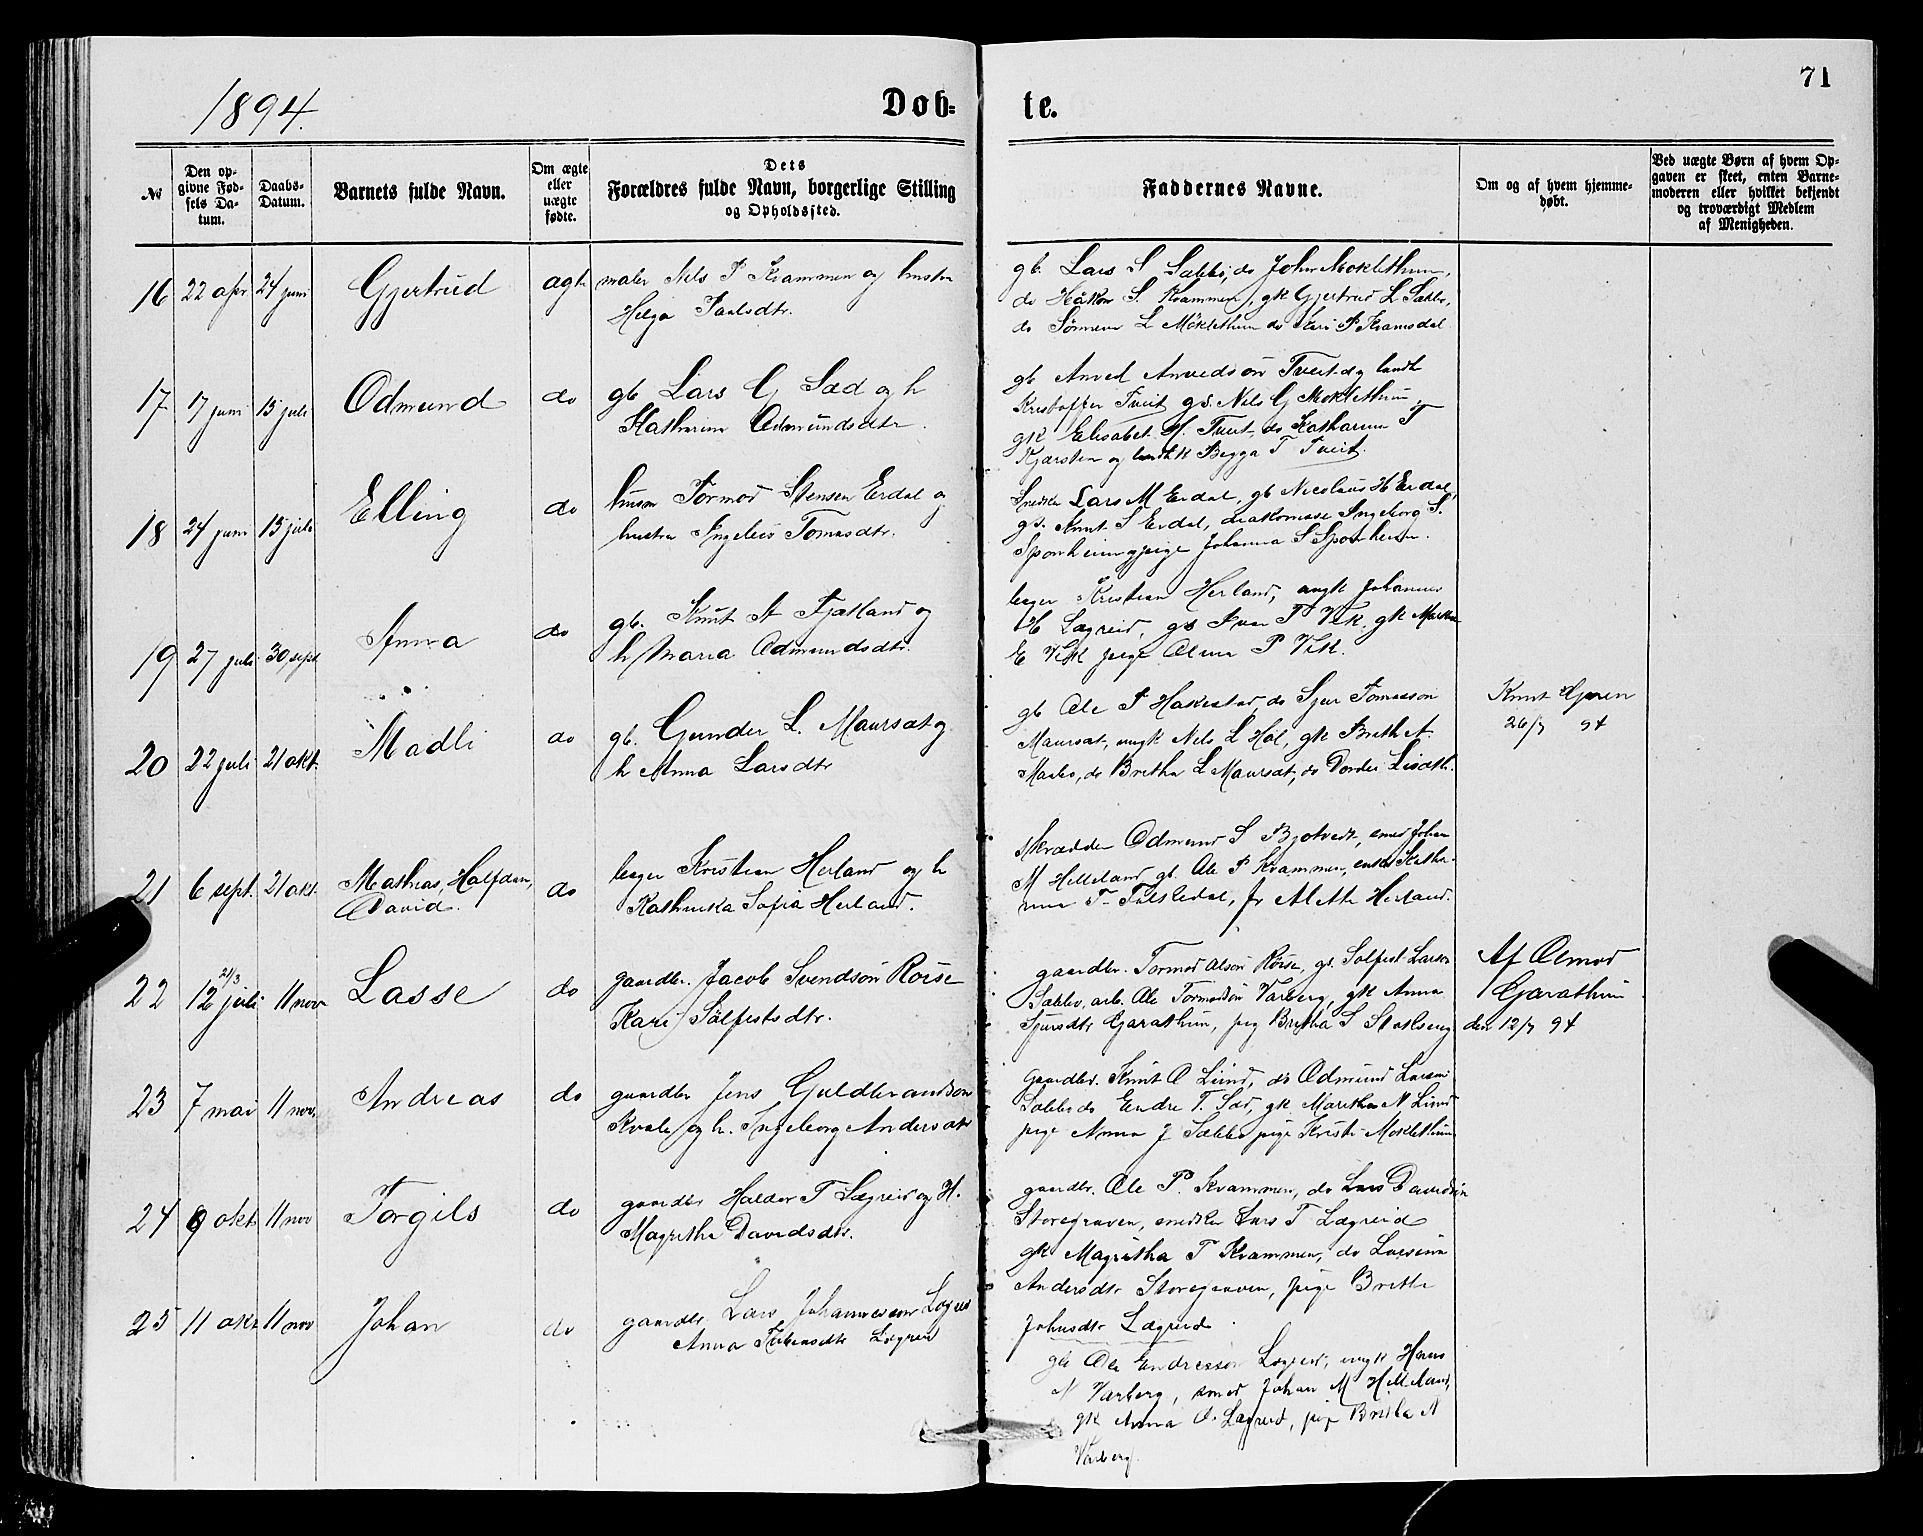 71
1894.
Døb-
te.
№
Den op-
givne Fød-
sels Da-
tum.
Daabs-
Datum.
Barnets fulde Navn.
Om ægte
eller
uægte
fødte.
Dets
Forældres fulde Navn, borgerlige Stilling
og Opholdssted.
Faddernes Navne.
Om og af hvem hjemme-
døbt.
Ved uægte Børn af hvem Op-
gaven er skeet, enten Barne-
moderen eller hvilket bekjendt
og troværdigt Medlem
af Menigheden.
16 22 apr 24 juni Gjertrud
maler Nels P Kvammen og hustru
Helga Paulsdtr.
gb. Lars S Sæbbø, do John Moklethun,
do Håkon S. Kvammen, gk Gjertrud L Sæbbø,
do L Moklethun do Kari P Kvamsdal
17 17 juni 15 juli Odmund do
gb Lars G Sæd og h
Katharina Odmundsdtr.
gb Anved Anvedson Tveit og landh
Kristoffer Tveit gs. Nils G Moklethun,
gk Elisabet H. Tveit, do Katharina T
og Begga T Tveit.
18 24 juni 15 juli Elling do
husm Tormod Stensen Erdal og
hustru Tomasdtr.
Snedker Lars M Erdal, gb Nicolaus H Erdal
gs. Knut S Erdal, diakonisse Ingeborg S.
Sponheim, pige Johanna S Sponheim.
19 27 juli 30 sept Anna do
gb. Knut A Tjatland og
h Maria Odmundsdtr.
læger Kristian Herland, ungk Johannes
H Lægreid, gs Ivar P Vik, gk
E Vik pige P Vik.
20 22 juli 21 okt. Madli do
gb. Gunder L. Maursæt og
h Anna Larsdtr
gb Ole P Hakestad, do Sjur Tomasson
Maursæt, ungk Nils L Hol, gk Brith A.
Maabø, do Bretha L Maursæt, do Dordei
Knut Garen
26/7 94
21 6 sept. 21 okt. Mathias, Halfdan,
David. do
læger Kristian Herland og h
Kathinka Sofia Herland.
Skrædder Odmund S Bjotveit, smed Johan
M Helleland, gb. Ole P Kvammen, enke Katha-
rina T. fr Alethe Herland.
22 21/3
12 juli 11 nov Lasse do
gaardbr. Jacob Svendson Røise
Kari Sølfestsdtr.
gaardbr. Tormod Olson Røise, gs. Sølfest Larson
Sæbbø, arb. Ole Tormodson Varberg, gk Anna
Sjursdtr Garathun, pig Bretha S
Af Olmod
Garathun
den 12/7 94
23 7 mai 11 nov. Andreas do
gaardbr Jens Guldbrandson
Kvale og h. Ingeborg Andersdtr
Gaardbr. Knut O Lund, do Odmund Larson
Sæbbø do Endre T. Sæd, gk Maretha N Lund
pige Anna J Sæbbø pige Kristi Moklethun
24 9 okt 11 nov Torgils do
gaardbr Haldor T Lægreid og H.
Magretha Davidsdtr.
gaardbr. Ole P. Kvammen, do Lars Davidson
Storegraven, snedker Lars T Lægreid
gk Magretha T Kvammen, do
Andersdtr Storegraven, pige Brethe
Johnsdtr Lægreid.
25 11 okt 11 nov Johan do
gaardbr Lars Johannesson Lægreid
Anna Torbensdtr Lægreid
gb Ole Endresson Lægreid, ungk Hans
N Varberg, smed Johan M Helleland,
gk Anna O. Lægreid, pige Bretha N
Varberg